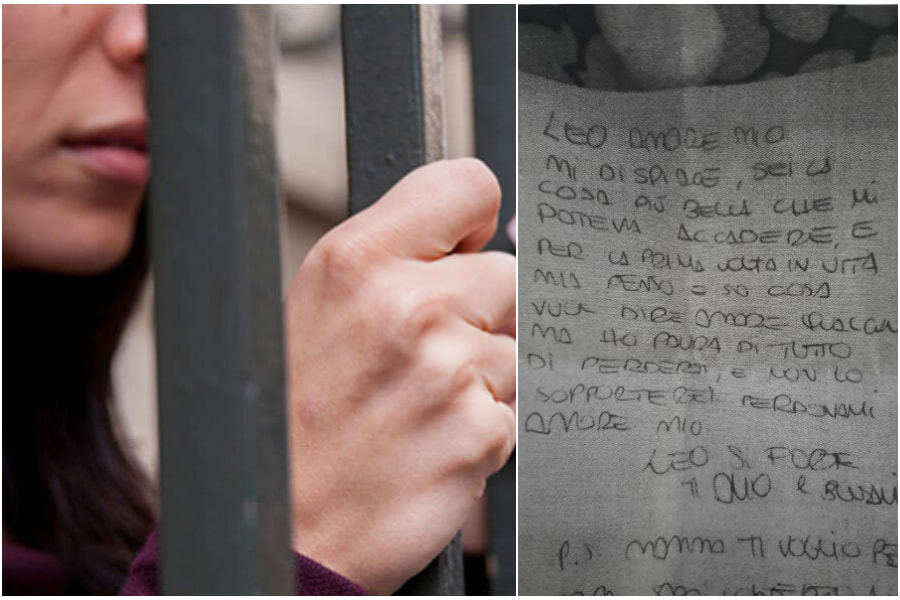 LEO AMORE MIO
MI DISPIACE, SEI LA
COSA PIÙ BELLA CHE MI
POTEVA ACCADERE, E
PER LA PRIMA VOLTA IN VITA
MIA PENSO E SO COSA
VUOL DIRE AMORE
MA HO PAURA DI TUTTO
DI PERDERTI, E NON LO
SOPPORTEREI PERDONAMI
AMORE MIO.
LEO SI FORTE
TI AMO E
P.S NONNA TI VOGLIO